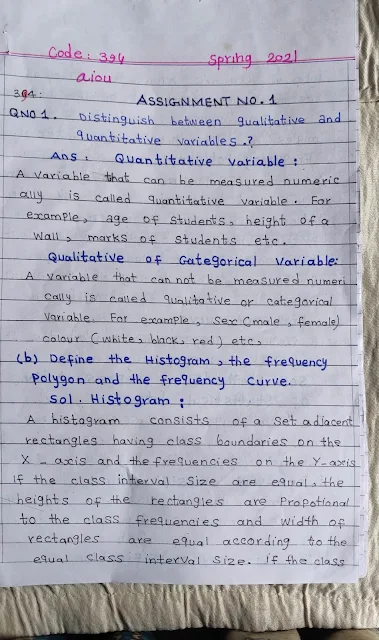 Code: 394 Spring 2021
aiou
394:
ASSIGNMENT NO. 1
QNO 1. Distinguish between qualitative and
quantitative variables.?
Ans. Quantitative variable:
A variable that can be measured numeric
ally is called quantitative variable. For
example, age of students, height of a
wall, marks of students etc.
Qualitative of Gategorical variable:
A variable that can not be measured numeri
cally is called qualitative or categorical
variable. For example, sex (male, female)
colour (white, black, red) etc,
(b) Define the Histogram, the frequency
polygon and the frequency curve.
Sol. Histogram:
A histogram consists of a set adjacent
rectangles having class boundaries on the
X-axis and the frequencies on the Y-axis
if the class interval size are equal, the
heights of the rectangles are Propotional
to the class frequencies and width of
rectangles are equal according to the
equal class interval size. if the class